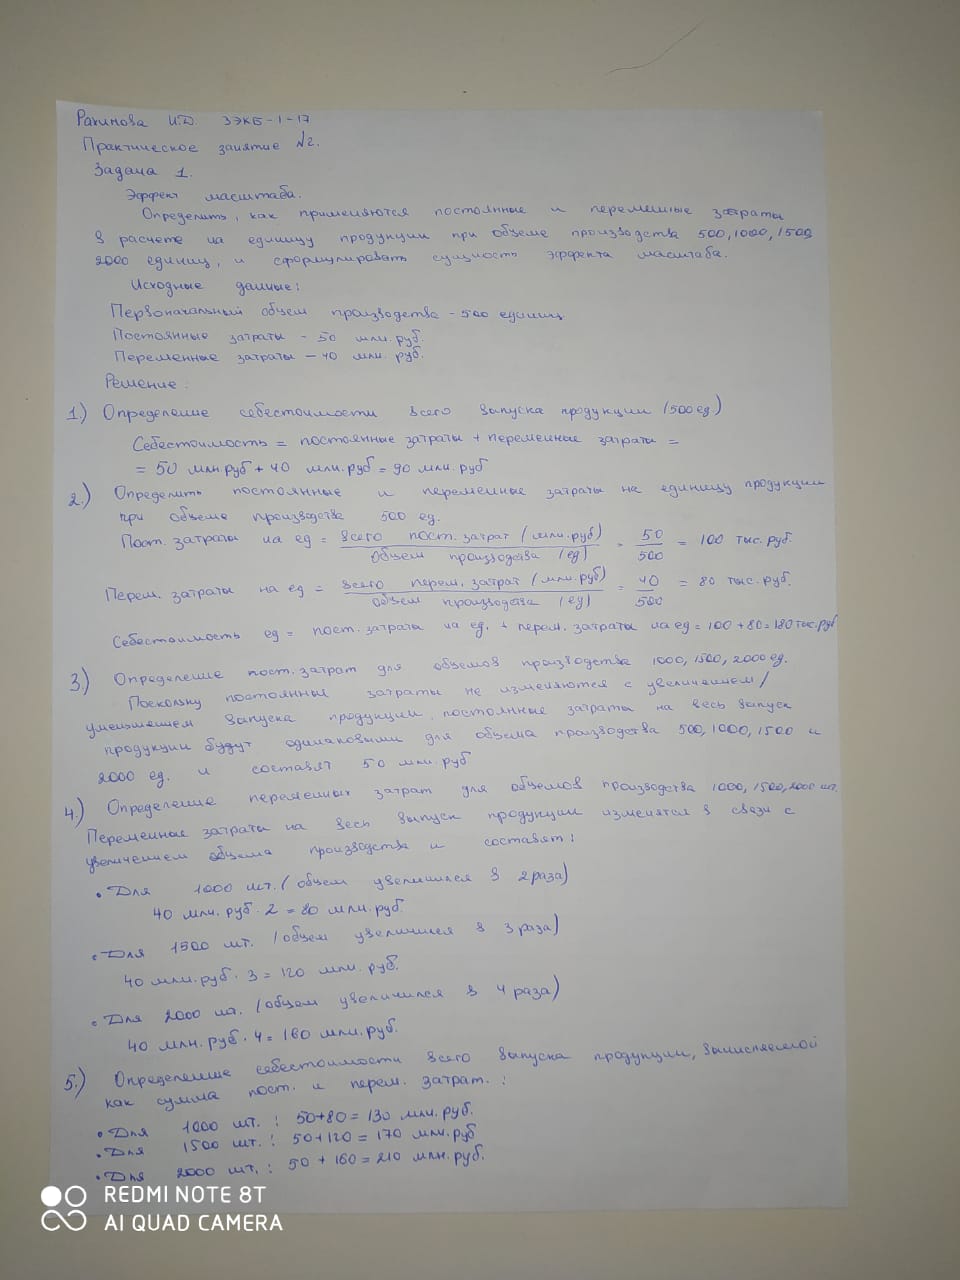 Рахимова И.Д. ЗЭКБ-1-17
Практическое занятие №2.
Задача 1.
Эффект масштаба.
Определить, как применяются постоянные и переменные затраты
в расчете на единицу продукции при объеме производства 500, 1000, 1500,
2000 единиц, и сформулировать сущность эффекта масштаба.
Исходные данные:
Первоначальный объем производства - 500 единиц.
Постоянные затраты - 50 млн. руб.
Переменные затраты - 40 млн. руб.
Решение:
1.) Определение себестоимости всего выпуска продукции (500 ед)
Себестоимость = постоянные затраты + переменные затраты =
= 50 млн. руб + 40 млн. руб = 90 млн. руб
2.) Определить постоянные и переменные затраты на единицу продукции
при объеме производства 500 ед.
Пост. затраты на ед = всего пост. затрат (млн. руб) / Объем производства (ед) = 50/500 = 100 тыс. руб.
Перем. затраты на ед = всего перем. затрат (млн. руб) / объем производства (ед) = 40/500 = 80 тыс. руб.
Себестоимость ед = пост. затраты на ед. + перем. затраты на ед = 100 + 80 = 180 тыс. руб
3.) Определение пост. затрат для объемов производства 1000, 1500, 2000 ед.
Поскольку постоянные затраты не изменяются с увеличением/
уменьшением выпуска продукции, постоянные затраты на весь выпуск
продукции будут одинаковыми для объема производства 500, 1000, 1500 и
2000 ед. и составят 50 млн. руб
4.) Определение переменных затрат для объемов производства 1000, 1500, 2000 шт.
Переменные затраты на весь выпуск продукции изменятся в связи с
увеличением объема производства и составят:
• Для 1000 шт. (объем увеличился в 2 раза)
40 млн. руб · 2 = 80 млн. руб.
• Для 1500 шт. (объем увеличился в 3 раза)
40 млн. руб · 3 = 120 млн. руб.
• Для 2000 шт. (объем увеличился в 4 раза)
40 млн. руб · 4 = 160 млн. руб.
5.) Определение себестоимости всего выпуска продукции, вычисляемой
как сумма пост. и перем. затрат. :
• Для 1000 шт. : 50+80 = 130 млн. руб.
• Для 1500 шт. : 50+120 = 170 млн. руб
• Для 2000 шт. : 50 + 160 = 210 млн. руб.
REDMI NOTE 8T
AI QUAD CAMERA